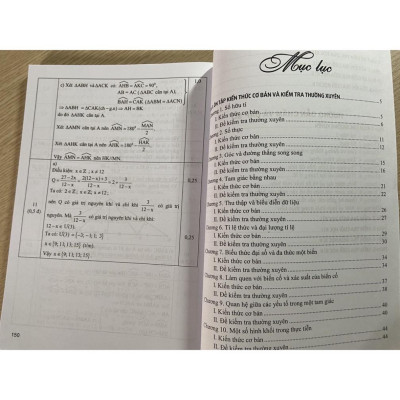 c) Xét ΔABH và ΔACK có AHB = AKC = 90°,
AB = AC (ΔABC cân tại A),
BAH = CAK (ΔABM = ΔACN)
⇒ ΔABH = ΔCAK (ch - g.n) ⇒ AH = HK
do đó ΔAHK cân tại A.
Xét ΔAMN cân tại A nên AMN = 180° - MAN / 2
Xét ΔAHK cân tại A nên AHK = 180° - HAK / 2
Vậy AMN = AHK nên HK//MN.
1,0
5
(0,5 đ)
a)
Điều kiện: x ∈ Z ; x ≠ 12
Q = 27 - 2x / 12 - x = 2(12 - x) + 3 / 12 - x = 2 + 3 / 12 - x
0,25
nên Q có giá trị nguyên khi và chỉ khi 3 / 12 - x có giá trị
nguyên. Mà 3 / 12 - x có giá trị nguyên khi và chỉ khi
12 - x ∈ Ư(3)
Ta có: Ư(3) = {-3; -1; 1; 3}
x ∈ {9; 11; 13; 15} (t/m).
Vậy x ∈ {9; 11; 13; 15}
0,25
150
Mục lục
ÔN TẬP KIẾN THỨC CƠ BẢN VÀ KIỂM TRA THƯỜNG XUYÊN
Chương 1. Số hữu tỉ 5
I. Kiến thức cơ bản
II. Đề kiểm tra thường xuyên
Chương 2. Số thực
I. Kiến thức cơ bản
II. Đề kiểm tra thường xuyên
Chương 3. Góc và đường thẳng song song
I. Kiến thức cơ bản
II. Đề kiểm tra thường xuyên
Chương 4. Tam giác bằng nhau
I. Kiến thức cơ bản
II. Đề kiểm tra thường xuyên
Chương 5. Thu thập và biểu diễn dữ liệu
I. Kiến thức cơ bản
II. Đề kiểm tra thường xuyên
Chương 6. Tỉ lệ thức và đại lượng tỉ lệ
I. Kiến thức cơ bản
II. Đề kiểm tra thường xuyên
Chương 7. Biểu thức đại số và đa thức một biến
I. Kiến thức cơ bản
II. Đề kiểm tra thường xuyên
Chương 8. Làm quen với biến cố và xác suất của biến cố
I. Kiến thức cơ bản
II. Đề kiểm tra thường xuyên
Chương 9. Quan hệ giữa các yếu tố trong một tam giác
I. Kiến thức cơ bản
II. Đề kiểm tra thường xuyên
Chương 10. Một số hình khối trong thực tiễn 44
I. Kiến thức cơ bản 44
II. Đề kiểm tra thường xuyên